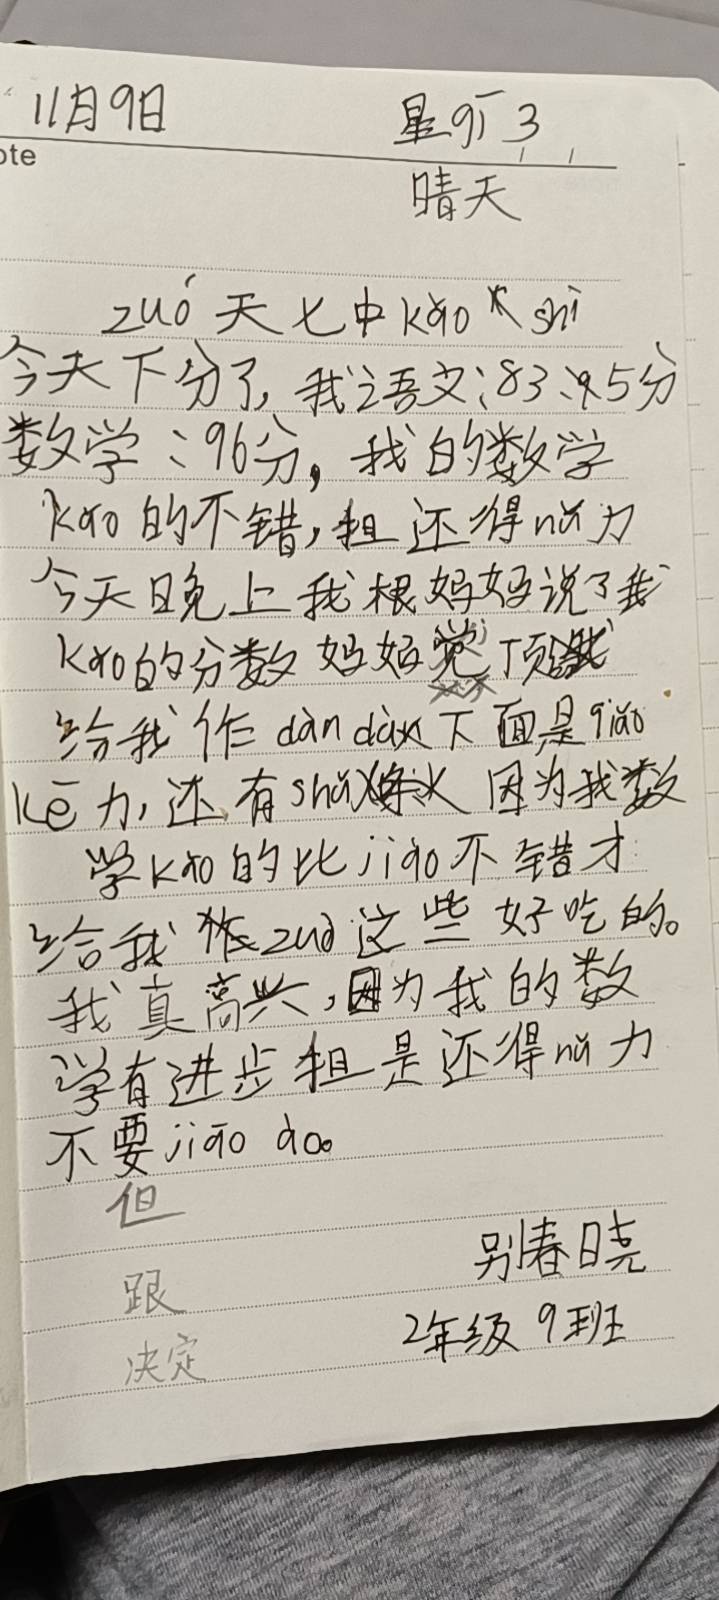 11月9日 星qī 3
ote
晴天
zuó天七中kǎo shì
今天下分了,我语文:83、95分
数学:96分,我的数学
kǎo的不错,担还得nǔ力
今天晚上我根妈妈说了我
kǎo的分数妈妈觉顶
给我作dàn dàn下面是qiǎo
kē力,还有shǔ 因为我数
学kǎo的比jiào不错才
给我zuò这些好吃的。
我真高兴,因为我的数
学有进步担是还得nǔ力
不要jiāo ào。
但
别春日尧
跟
2年级9班
决定